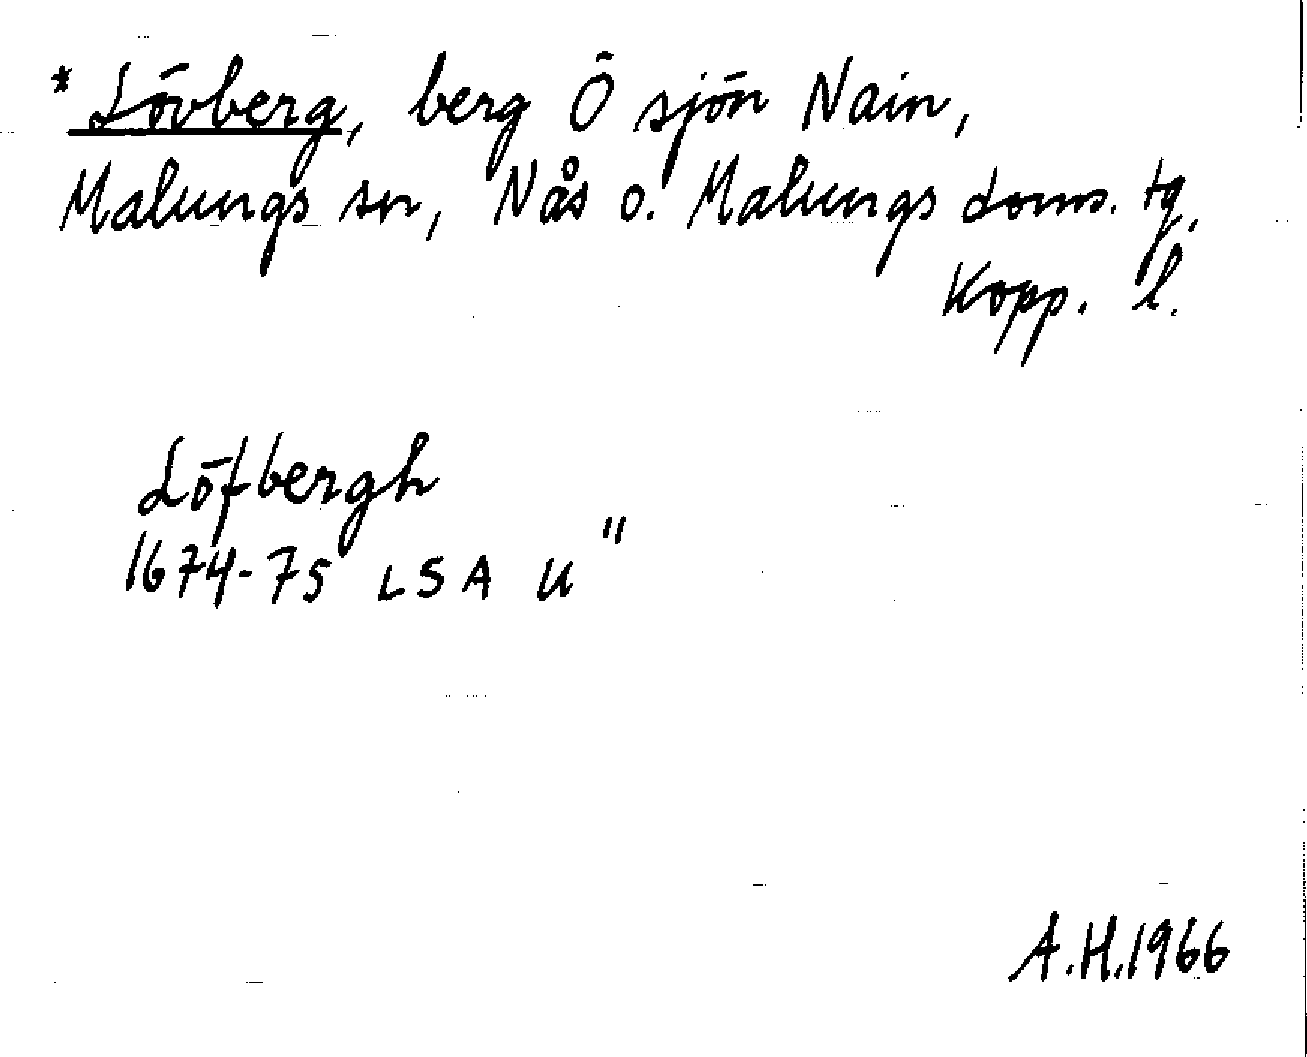 * Lövberg, berg Ö sjön Nain,
Malungs sn, Nås o. Malungs doms. tg,
Kopp. l.
Löfbergh
1674-75 LSA U"
A.H.1966